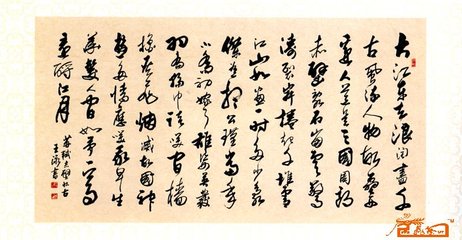 大江東去浪淘盡千
古風流人物故壘西
邊人道是三國周郎
赤壁亂石崩雲驚
濤裂岸捲起千堆雪
江山如畫一時多少豪
傑遙想公瑾當年
小喬初嫁了雄姿英發
羽扇綸巾談笑間檣
櫓灰飛煙滅故國神
遊多情應笑我早生
華髮人間如夢一尊
還酹江月
蘇軾赤壁懷古